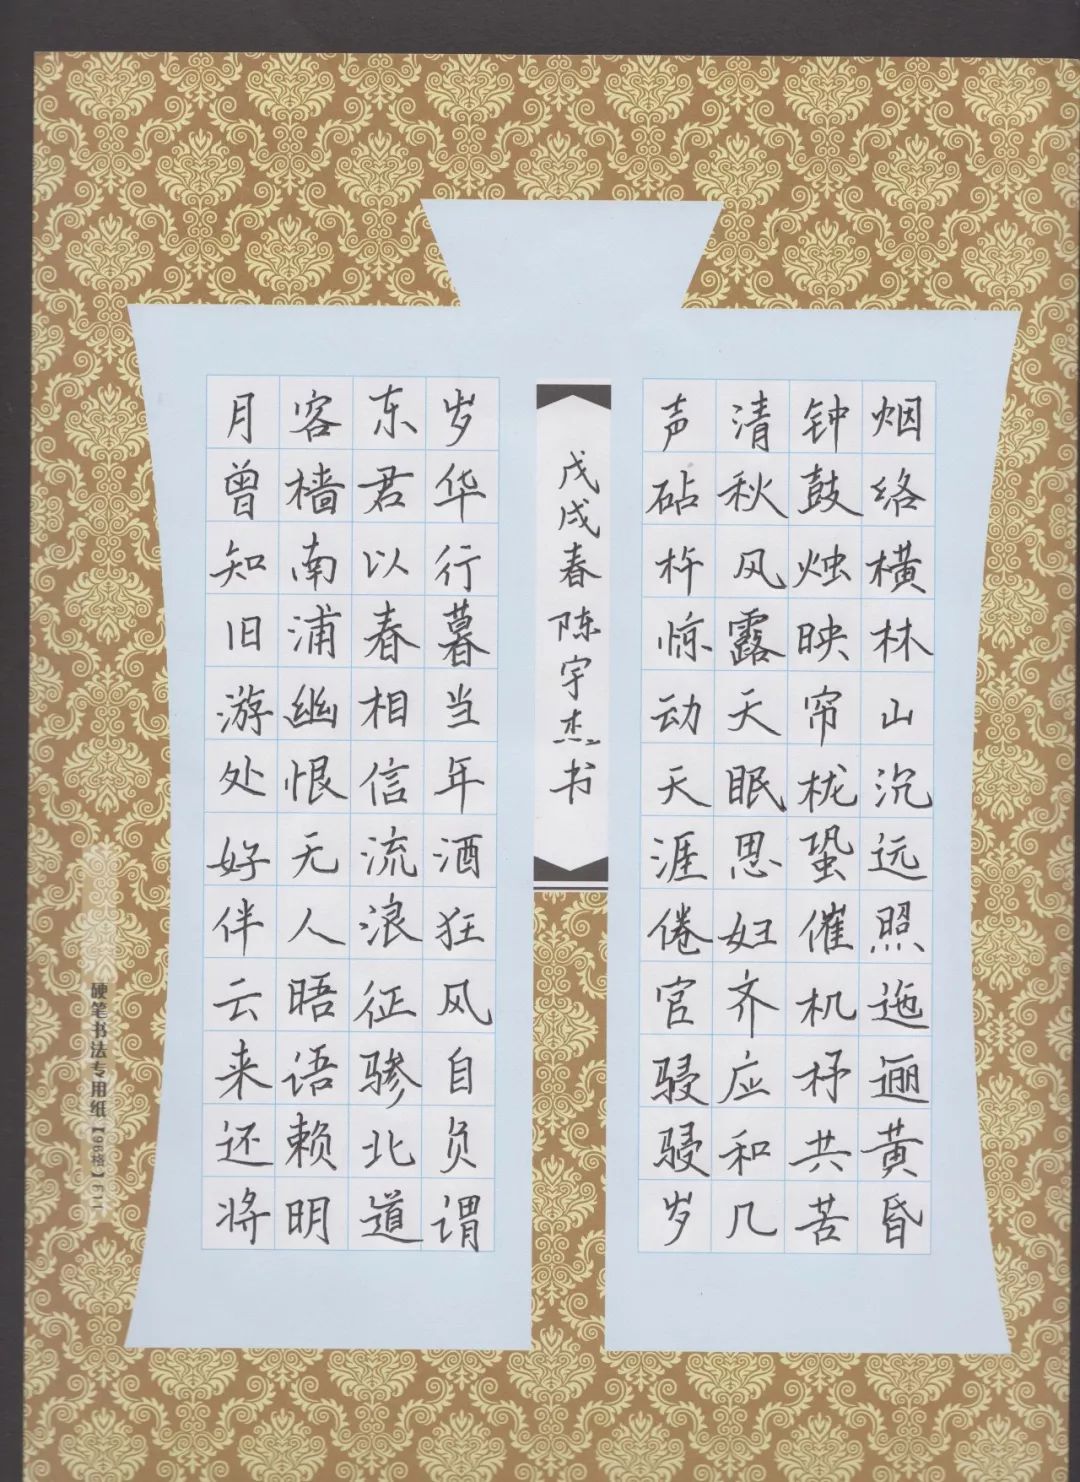 烟络横林山沉远照迤逦黄昏
钟鼓烛映帘栊蛩催机杼共苦
清秋风露天眠思妇齐应和几
声砧杵惊动天涯倦宦骎骎岁
岁华行暮当年酒狂风自负谓
东君以春相信流浪征骖北道
客樯南浦幽恨无人晤语赖明
月曾知旧游处好伴云来还将
戊戌春陈宇杰书
硬笔书法专用纸【96格】